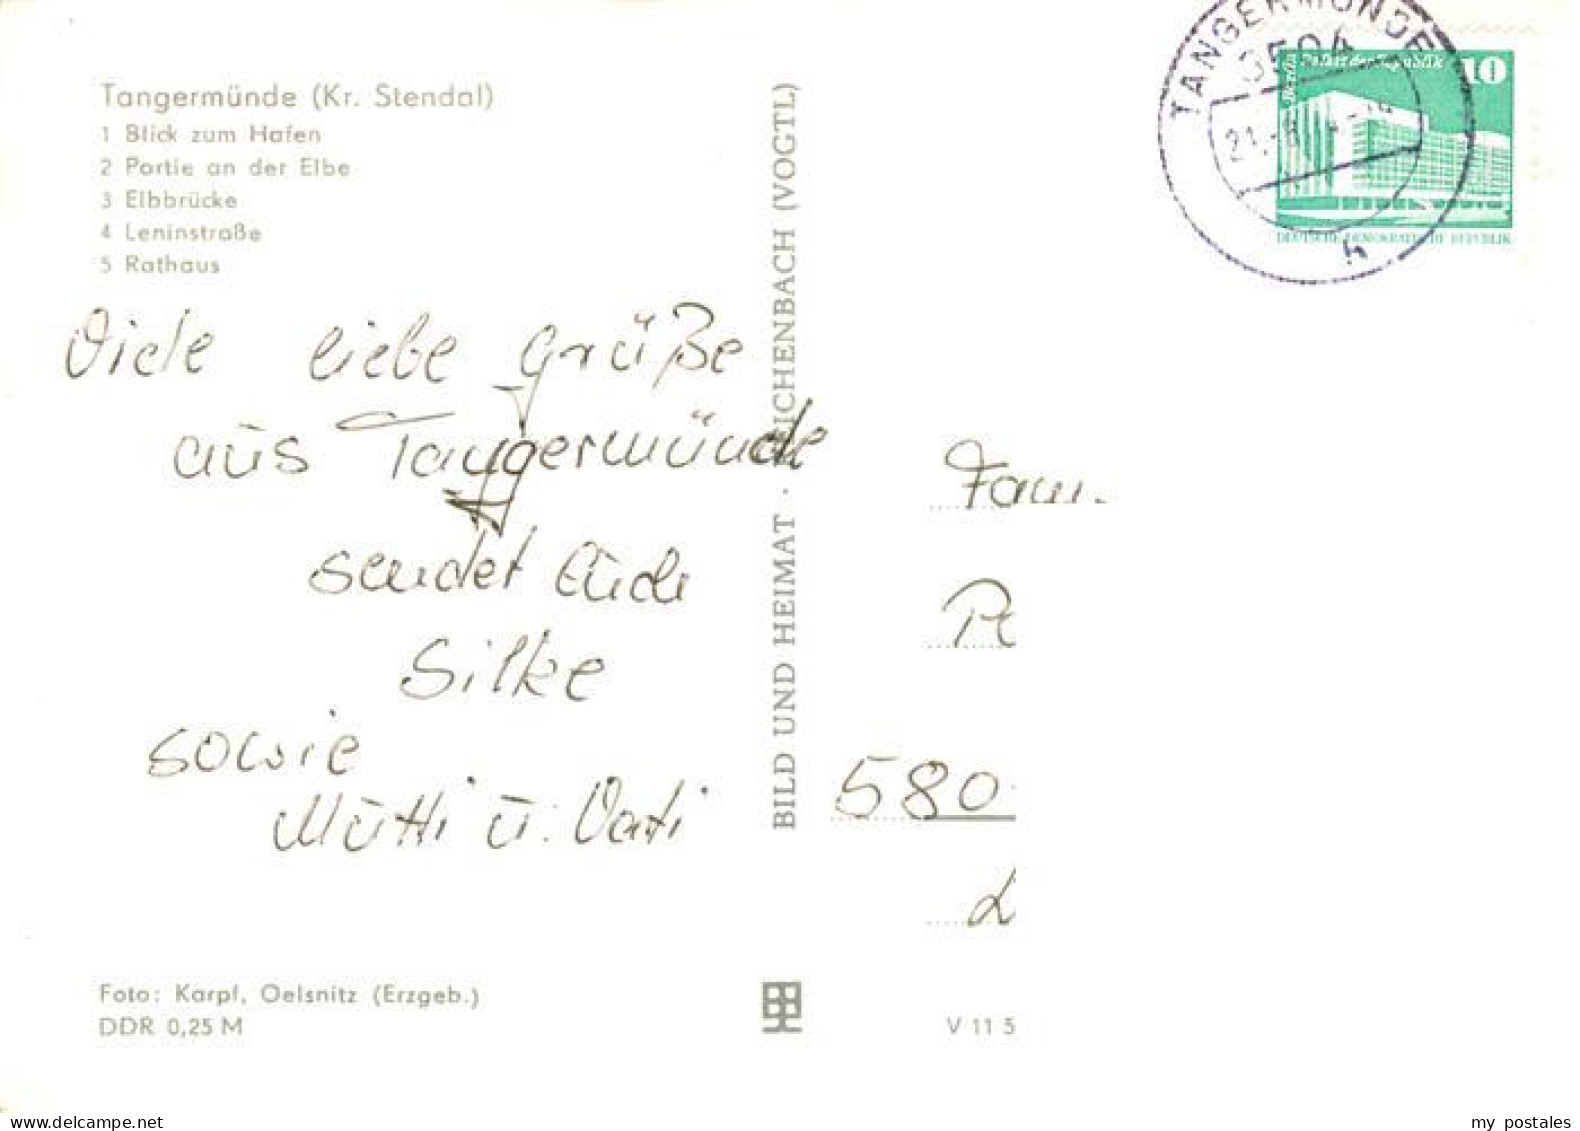 Tangermünde (Kr. Stendal)
1 Blick zum Hafen
2 Partie an der Elbe
3 Elbbrücke
4 Leninstraße
5 Rathaus
Viele liebe Grüße
aus Tangermünde
sendet Euch
Silke
sowie
Mutti u. Vati
Foto: Karpf, Oelsnitz (Erzgeb.)
DDR 0,25 M
BILD UND HEIMAT · REICHENBACH (VOGTL)
TANGERMÜNDE
3504
21.
h
Berlin Palast der Republik 10
DEUTSCHE DEMOKRATISCHE REPUBLIK
Fam.
580
V 11 5
my postales